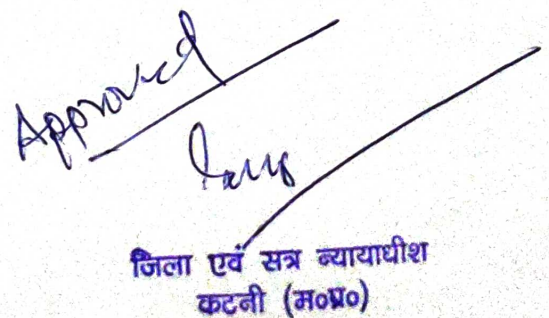 Approved
जिला एवं सत्र न्यायाधीश
कटनी (म०प्र०)